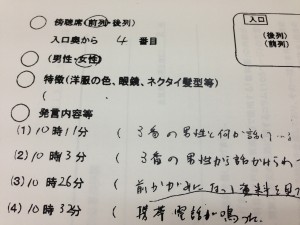 傍聴席(前列・後列)
入口
(後列)
(前列)
入口奥から 4 番目
(男性・女性)
特徴(洋服の色、眼鏡、ネクタイ髪型等)
(
発言内容等
(1) 10時11分 ( 3番の男性と何か話し…
(2) 10時3分 ( 3番の男性から話かけられ
(3) 10時26分 ( 前かがみになって資料を見て
(4) 10時32分 ( 携帯電話が鳴った